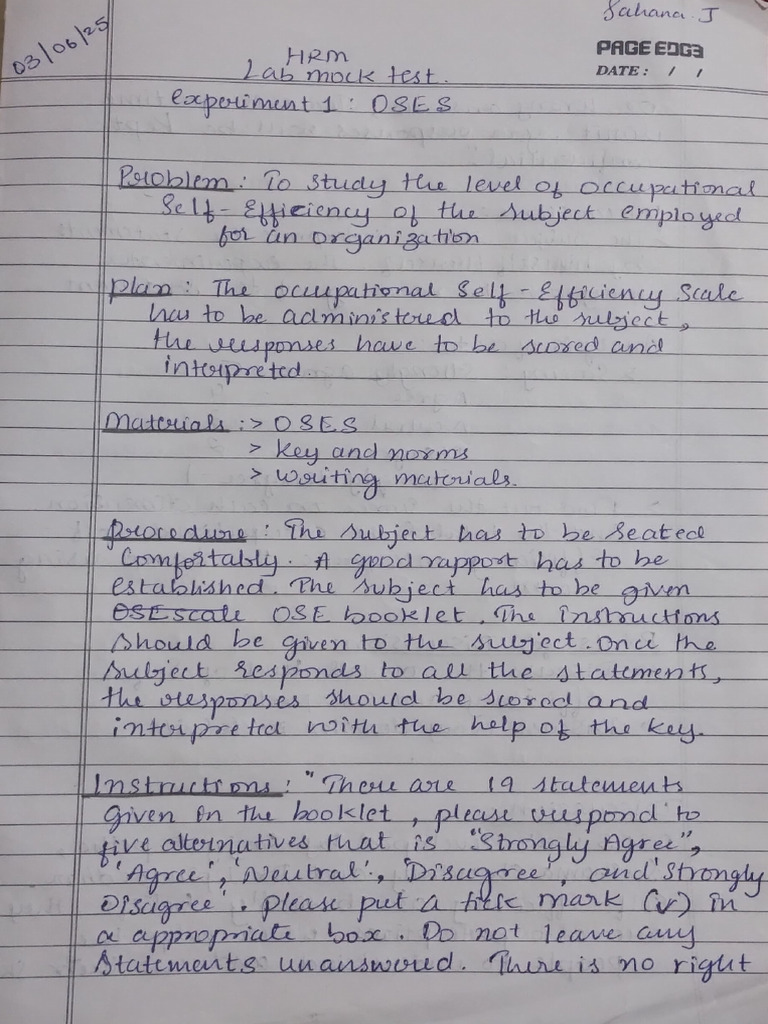 Sahana. J
03/06/25
PAGE EDGE
DATE: / /
HRM
Lab mock test.
Experiment 1 : OSES
Problem : To study the level of occupational
Self-Efficiency of the subject employed
for an organization
Plan : The occupational Self-Efficiency Scale
has to be administered to the subject,
the responses have to be scored and
interpreted.
Materials :> OSES
> Key and norms
> Writing materials.
Procedure : The subject has to be seated
Comfortably. A good rapport has to be
established. The subject has to be given
OSE scale OSE booklet. The instructions
should be given to the subject. Once the
subject responds to all the statements,
the responses should be scored and
interpreted with the help of the key.
Instructions : "There are 19 statements
given in the booklet, please respond to
five alternatives that is "Strongly Agree",
'Agree', 'Neutral', 'Disagree', and 'Strongly
Disagree'. please put a tick mark (✓) in
a appropriate box. Do not leave any
Statements unanswered. There is no right